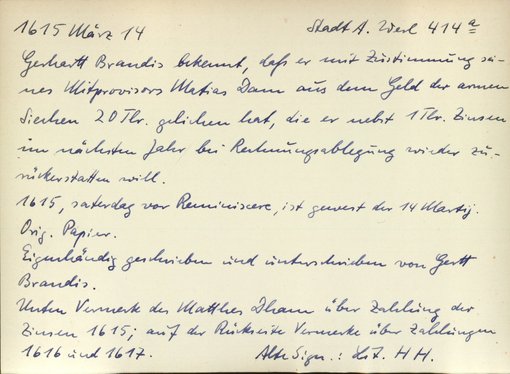 1615 März 14 Stadt A. Werl 414 a
Gerhartt Brandis bekennt, daß er mit Zustimmung sei-
nes Mitprovisors Matias Dam aus dem Geld der armen
Siechen 20 Tlr. geliehen hat, die er nebst 1 Tlr. Zinsen
im nächsten Jahr bei Rechnungsablegung wieder zu-
rückerstatten will.
1615, saterdag vor Reminiscere, ist gewest der 14 Martij.
Orig. Papier.
Eigenhändig geschrieben und unterschrieben von Gertt
Brandis.
Unten Vermerke des Matthes Dham über Zahlung der
Zinsen 1615; auf der Rückseite Vermerke über Zahlungen
1616 und 1617. Alte Sign.: Lit. HH.